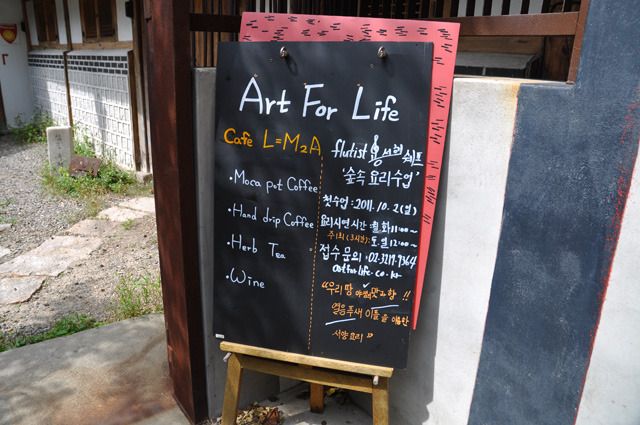 Art For Life
Cafe L=M2A
•Moca pot Coffee
•Hand drip Coffee
•Herb Tea
•Wine
flutist 쉐프
'숲속 요리수업'
첫수업 : 2011. 10. 2(일)
요리시연 시간 : 월 화 11:00~
주1회 (3시간) 토 일 12:00~
접수 문의 : 02-3217-7364
artforlife.co.kr
"우리땅 맛과 향 !!
열음푸새 이들을
서양요리"